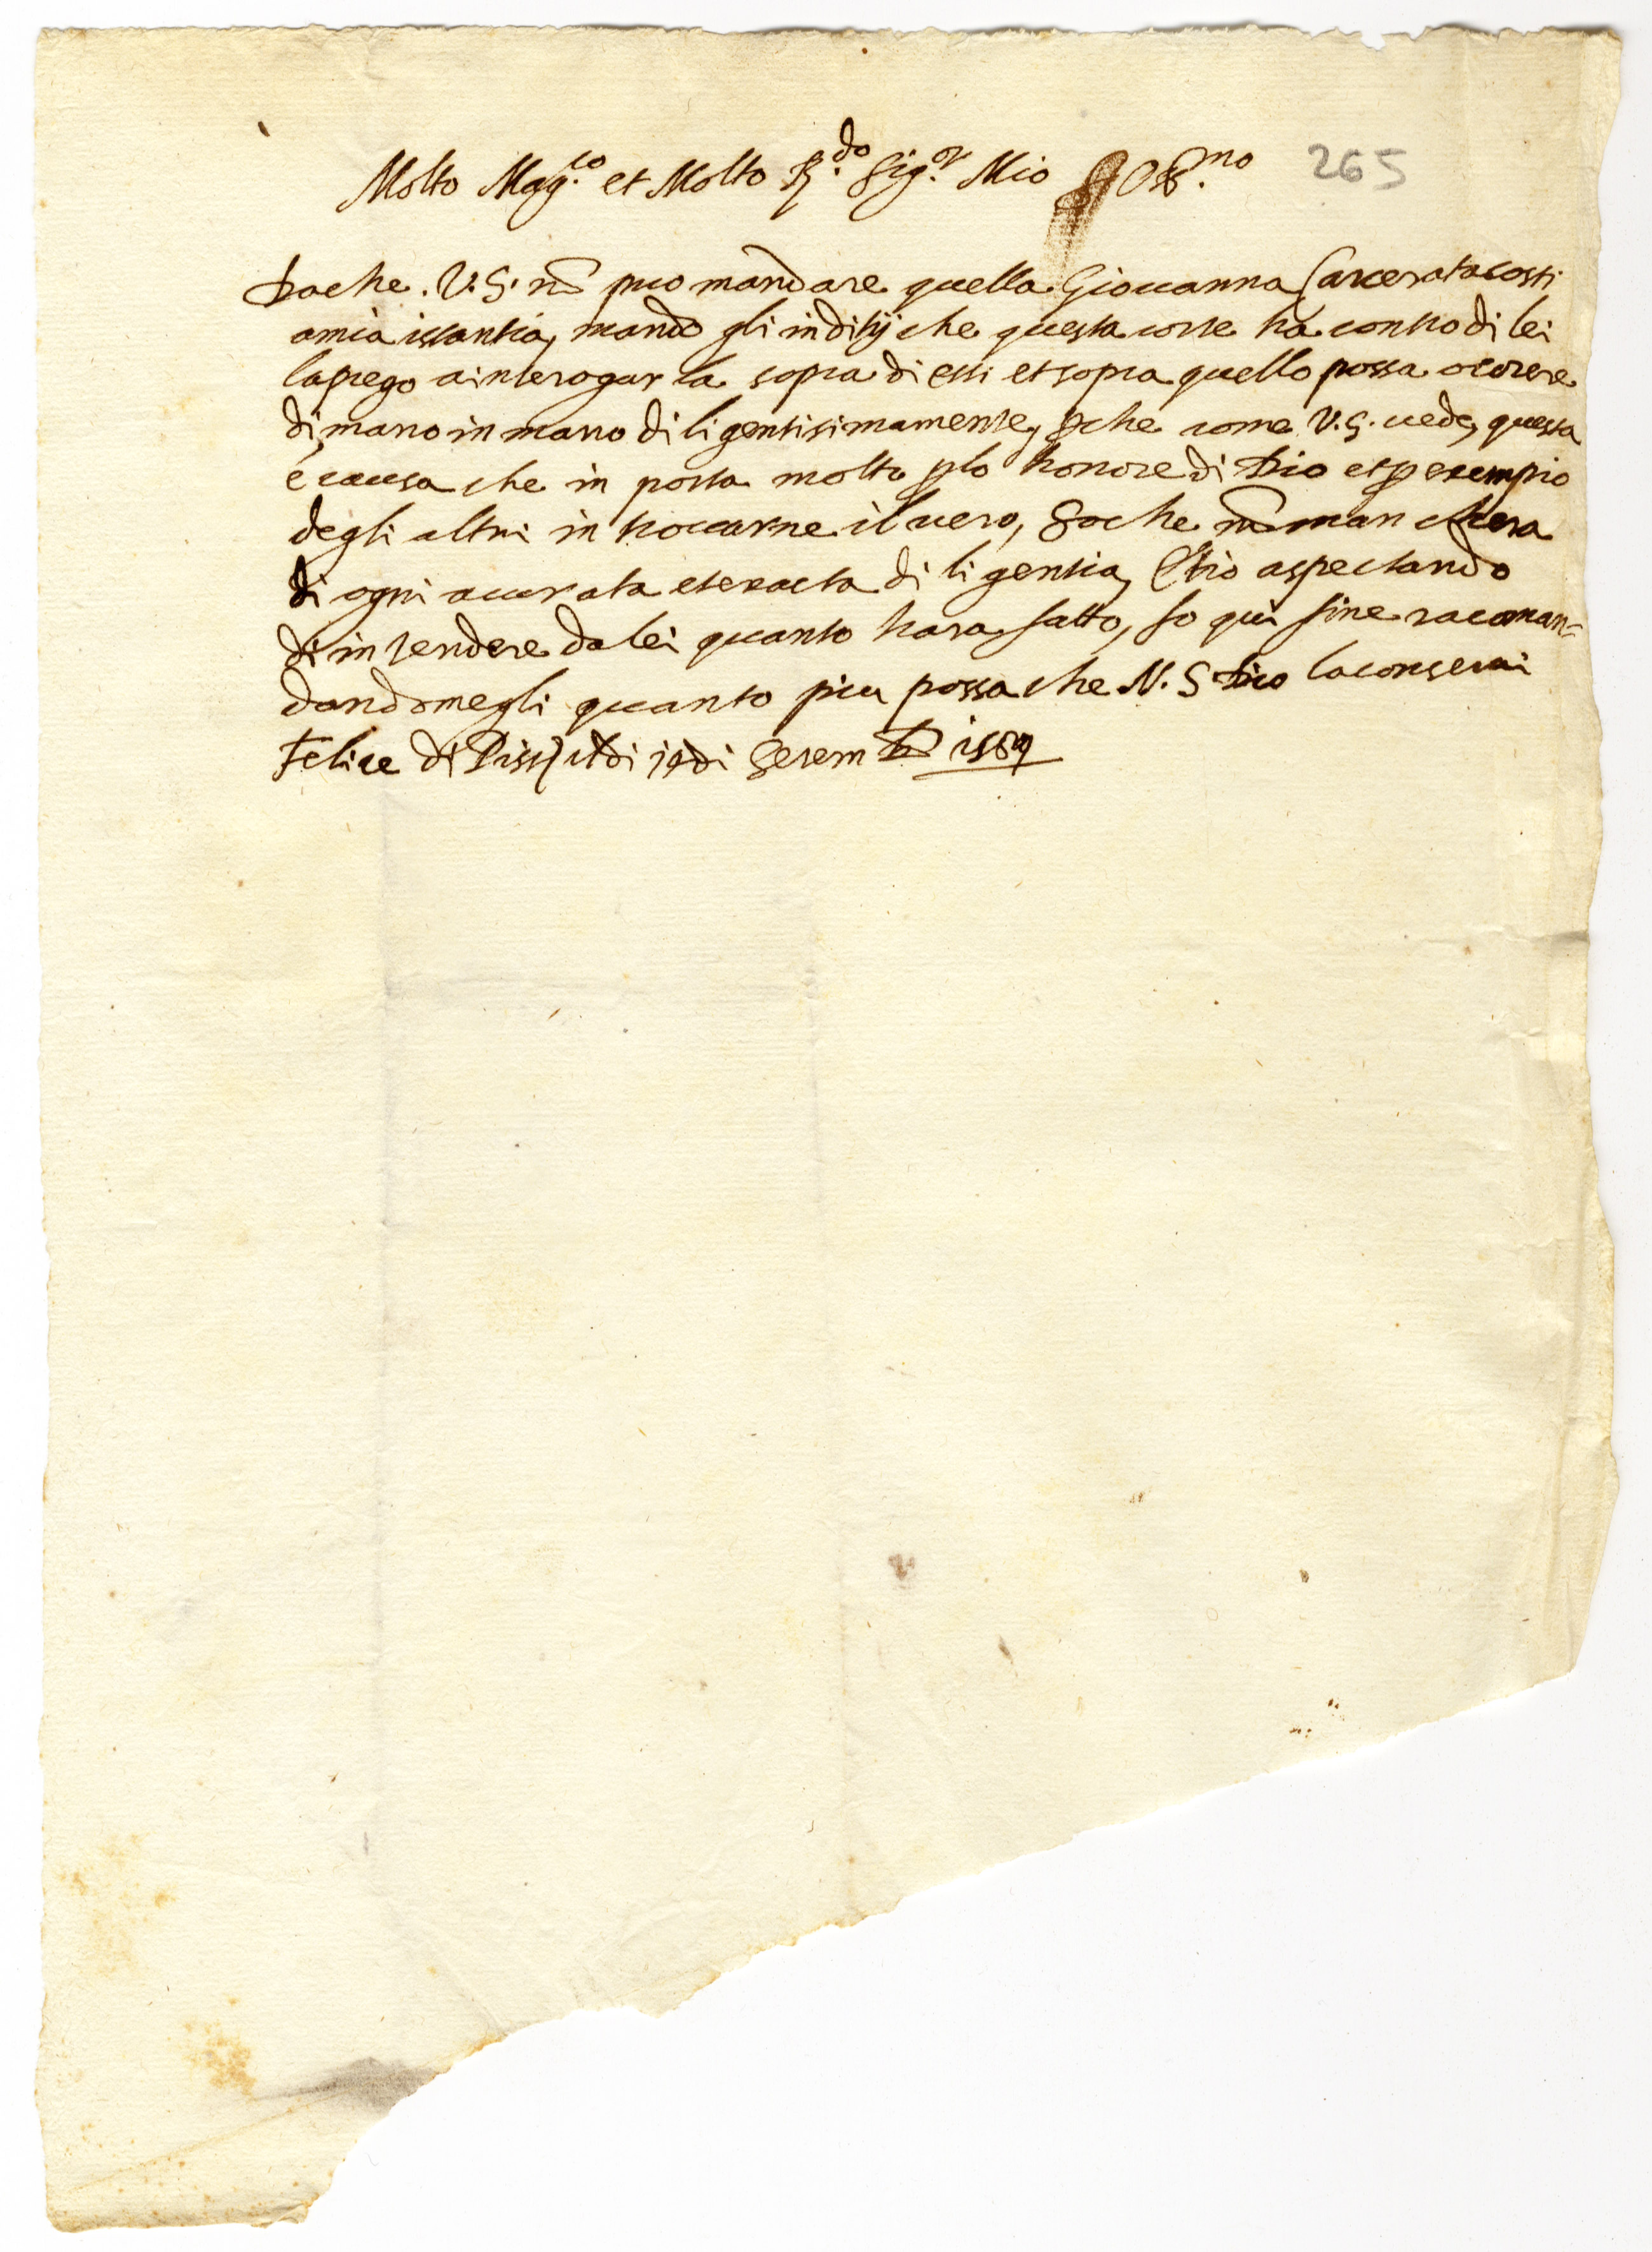 Molto Mag.co et Molto R.do Sig.or Mio Oss.mo 265
Poiche V.S. nõ puo mandare quella Giouanna Carcerata costi
a mia istantia, mando gli inditij che questa corte ha contro di lei
la prego a interogarla sopra di essi et sopra quello possa ocorere
di mano in mano diligentisimamente, perche come V.S. uede, questa
è causa che in porta molto p lo honore di Dio et p exempio
degli altri in trouarne il uero, so che nõ manchera
di ogni accurata et exacta diligentia, Et io aspectando
di intendere da lei quanto hara fatto, fo qui fine racoman=
dandomegli quanto piu possa che N. S. Dio la conserui
Felice di adi 19 di 1589